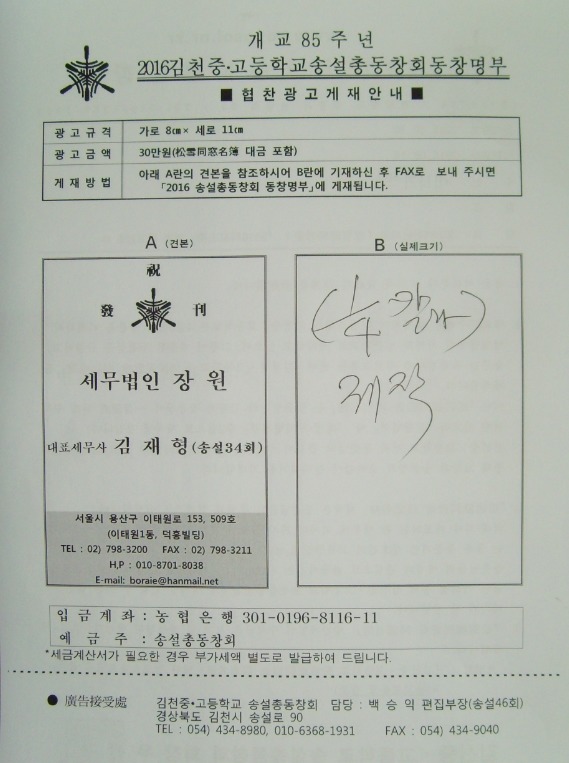 개교 85 주년
2016김천중·고등학교송설총동창회동창명부
■ 협찬광고게재안내 ■
광고규격 가로 8㎝× 세로 11㎝
광고금액 30만원(松雪同窓名簿 대금 포함)
게재방법 아래 A란의 견본을 참조하시어 B란에 기재하신 후 FAX로 보내 주시면
「2016 송설총동창회 동창명부」에 게재됩니다.
A (견본)
祝
發 刊
세무법인 장 원
대표세무사 김 재 형(송설34회)
서울시 용산구 이태원로 153, 509호
(이태원1동, 덕흥빌딩)
TEL : 02) 798-3200 FAX : 02) 798-3211
H,P : 010-8701-8038
E-mail: boraie@hanmail.net
B (실제크기)
(1/4 칼라)
제작
입금계좌 : 농협은행 301-0196-8116-11
예 금 주 : 송설총동창회
*세금계산서가 필요한 경우 부가세액 별도로 발급하여 드립니다.
● 廣告接受處 김천중·고등학교 송설총동창회 담당 : 백 승 익 편집부장(송설46회)
경상북도 김천시 송설로 90
TEL : 054) 434-8980, 010-6368-1931 FAX : 054) 434-9040